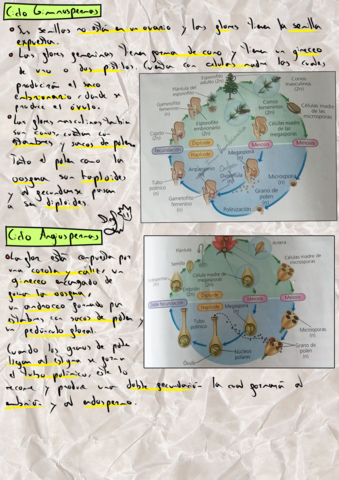 Ciclo Gimnospermas
• Sus semillas no están en un ovario y las flores tienen la semilla
expuesta.
• Las flores femeninas tienen forma de cono y tienen un gineceo
de uno o dos pistilos. Cuentan con células madre los cuales
producirán el saco
embrionario donde se
produce el óvulo.
• Las flores masculinas también
son conos, cuentan con
estambres y sacos de polen
Tanto el polen como la
oosfera son haploides
y al fecundarse pasan
a ser diploides.
Esporofito adulto (2n)
Conos masculinos (2n)
Plántula del esporofito (2n)
Conos femeninos (2n)
Células madre de las microsporas
Gametofito femenino (n)
Esporofito embrionario (2n)
Células madre de las megasporas
Cigoto (2n)
Fecundación
Diploide
Haploide
Meiosis
Meiosis
Arquegonio (n)
Megaspora (n)
Oosfera (n)
Tubo polínico (n)
Gametofito (n)
Grano de polen (n)
Polinización
Ciclo Angiospermas
La flor está compuesta por
una corola y cáliz, un
gineceo encargado de
formar la oosfera
un androceo formado por
estambres con sacos de polen y
un pedúnculo floral.
Cuando los granos de polen
llegan al estigma se forma
el tubo polínico, este lo
recorre y produce una doble fecundación la cual formará al
embrión y al endospermo.
Plántula
Antera
Semilla
Célula madre de megasporas
Célula madre de microsporas
Cigoto
Doble fecundación
Diploide
Haploide
Meiosis
Meiosis
Megaspora (n)
Tubo polínico (n)
Microsporas (n)
Grano de polen (n)
Núcleos polares
Óvulo